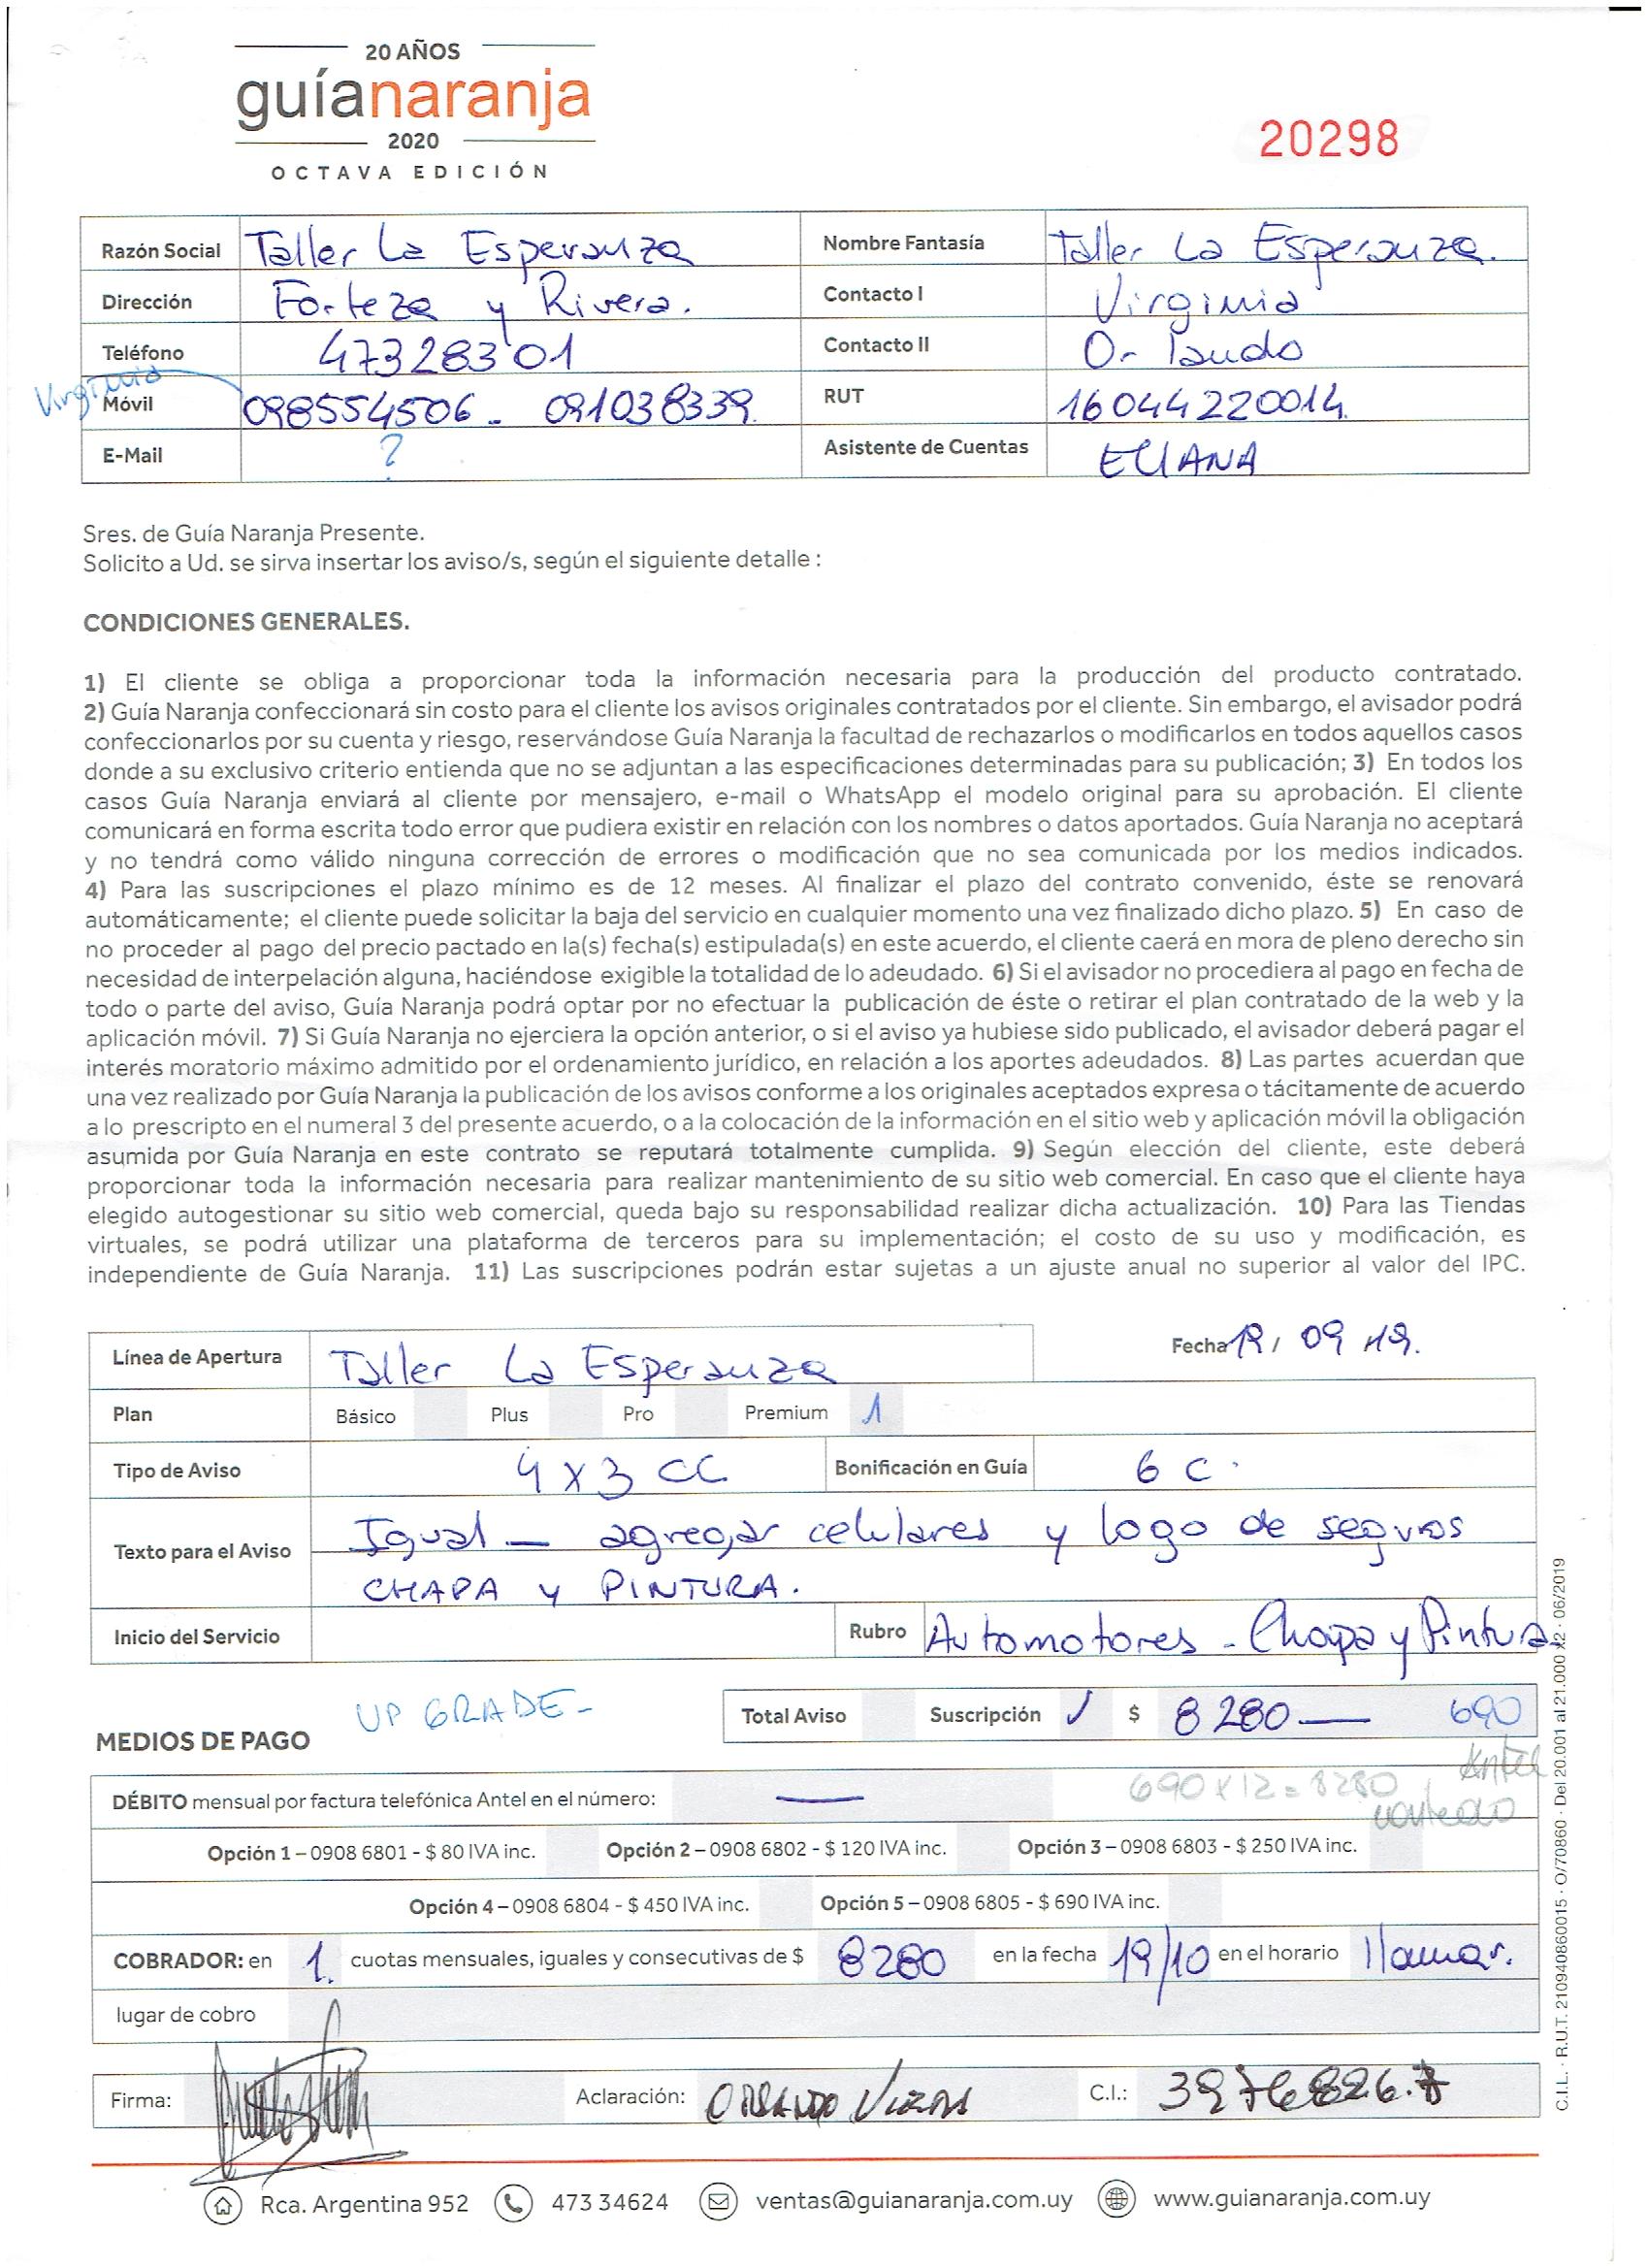 20 AÑOS
guíanaranja
2020
OCTAVA EDICIÓN
20298
Razón Social Taller La Esperanza Nombre Fantasía Taller La Esperanza.
Dirección Forteza y Rivera. Contacto I Virginia
Teléfono 47328301 Contacto II Orlando
Virginia Móvil 098554506 - 091038339. RUT 16044220014
E-Mail ? Asistente de Cuentas ELIANA
Sres. de Guía Naranja Presente.
Solicito a Ud. se sirva insertar los aviso/s, según el siguiente detalle :
CONDICIONES GENERALES.
1) El cliente se obliga a proporcionar toda la información necesaria para la producción del producto contratado.
2) Guía Naranja confeccionará sin costo para el cliente los avisos originales contratados por el cliente. Sin embargo, el avisador podrá
confeccionarlos por su cuenta y riesgo, reservándose Guía Naranja la facultad de rechazarlos o modificarlos en todos aquellos casos
donde a su exclusivo criterio entienda que no se adjuntan a las especificaciones determinadas para su publicación; 3) En todos los
casos Guía Naranja enviará al cliente por mensajero, e-mail o WhatsApp el modelo original para su aprobación. El cliente
comunicará en forma escrita todo error que pudiera existir en relación con los nombres o datos aportados. Guía Naranja no aceptará
y no tendrá como válido ninguna corrección de errores o modificación que no sea comunicada por los medios indicados.
4) Para las suscripciones el plazo mínimo es de 12 meses. Al finalizar el plazo del contrato convenido, éste se renovará
automáticamente; el cliente puede solicitar la baja del servicio en cualquier momento una vez finalizado dicho plazo. 5) En caso de
no proceder al pago del precio pactado en la(s) fecha(s) estipulada(s) en este acuerdo, el cliente caerá en mora de pleno derecho sin
necesidad de interpelación alguna, haciéndose exigible la totalidad de lo adeudado. 6) Si el avisador no procediera al pago en fecha de
todo o parte del aviso, Guía Naranja podrá optar por no efectuar la publicación de éste o retirar el plan contratado de la web y la
aplicación móvil. 7) Si Guía Naranja no ejerciera la opción anterior, o si el aviso ya hubiese sido publicado, el avisador deberá pagar el
interés moratorio máximo admitido por el ordenamiento jurídico, en relación a los aportes adeudados. 8) Las partes acuerdan que
una vez realizado por Guía Naranja la publicación de los avisos conforme a los originales aceptados expresa o tácitamente de acuerdo
a lo prescripto en el numeral 3 del presente acuerdo, o a la colocación de la información en el sitio web y aplicación móvil la obligación
asumida por Guía Naranja en este contrato se reputará totalmente cumplida. 9) Según elección del cliente, este deberá
proporcionar toda la información necesaria para realizar mantenimiento de su sitio web comercial. En caso que el cliente haya
elegido autogestionar su sitio web comercial, queda bajo su responsabilidad realizar dicha actualización. 10) Para las Tiendas
virtuales, se podrá utilizar una plataforma de terceros para su implementación; el costo de su uso y modificación, es
independiente de Guía Naranja. 11) Las suscripciones podrán estar sujetas a un ajuste anual no superior al valor del IPC.
Línea de Apertura Taller La Esperanza Fecha 19 / 09 /19.
Plan Básico Plus Pro Premium 1
Tipo de Aviso 4 x 3 CC Bonificación en Guía 6 C.
Texto para el Aviso Igual - agregar celulares y logo de seguros
CHAPA y PINTURA.
Inicio del Servicio Rubro Automotores - Chapa y Pintura
UP GRADE -
MEDIOS DE PAGO Total Aviso Suscripción ✓ $ 8280 — 690
Antel
DÉBITO mensual por factura telefónica Antel en el número: — 690 x 12 = 8280
contado
Opción 1 – 0908 6801 - $ 80 IVA inc. Opción 2 – 0908 6802 - $ 120 IVA inc. Opción 3 – 0908 6803 - $ 250 IVA inc.
Opción 4 – 0908 6804 - $ 450 IVA inc. Opción 5 – 0908 6805 - $ 690 IVA inc.
COBRADOR: en 1. cuotas mensuales, iguales y consecutivas de $ 8280 en la fecha 19/10 en el horario llamar.
lugar de cobro
Firma: Aclaración: ORLANDO C.I.: 3976826.7
C.I.L. · R.U.T. 210940860015 · O/70860 · Del 20.001 al 21.000 x2 · 06/2019
Rca. Argentina 952 473 34624 ventas@guianaranja.com.uy www.guianaranja.com.uy